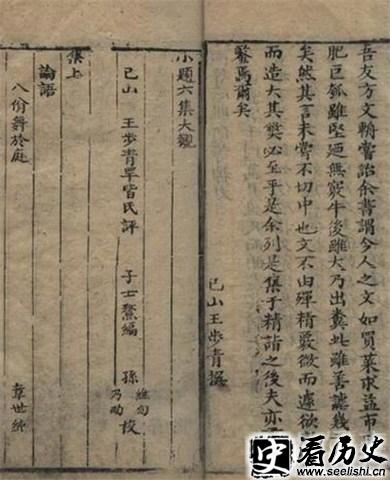 吾友方文輈嘗詒余書謂今人之文如買菜求益市
肥巨瓠雖堅迺無竅牛後雖大乃出糞此雖善謔幾
矣然其言未嘗不切中也文不由殫精覈微而遽欲
而造大其獘必至乎是余列是集于精詣之後夫亦
鑒焉爾矣
己山王步青撰
小題六集大觀
己山 王步青罕皆民評 子士鰲編 孫 維甸 乃昀 校
集上
論語
八佾舞於庭
韋世
史看历史
www.seelishi.cn